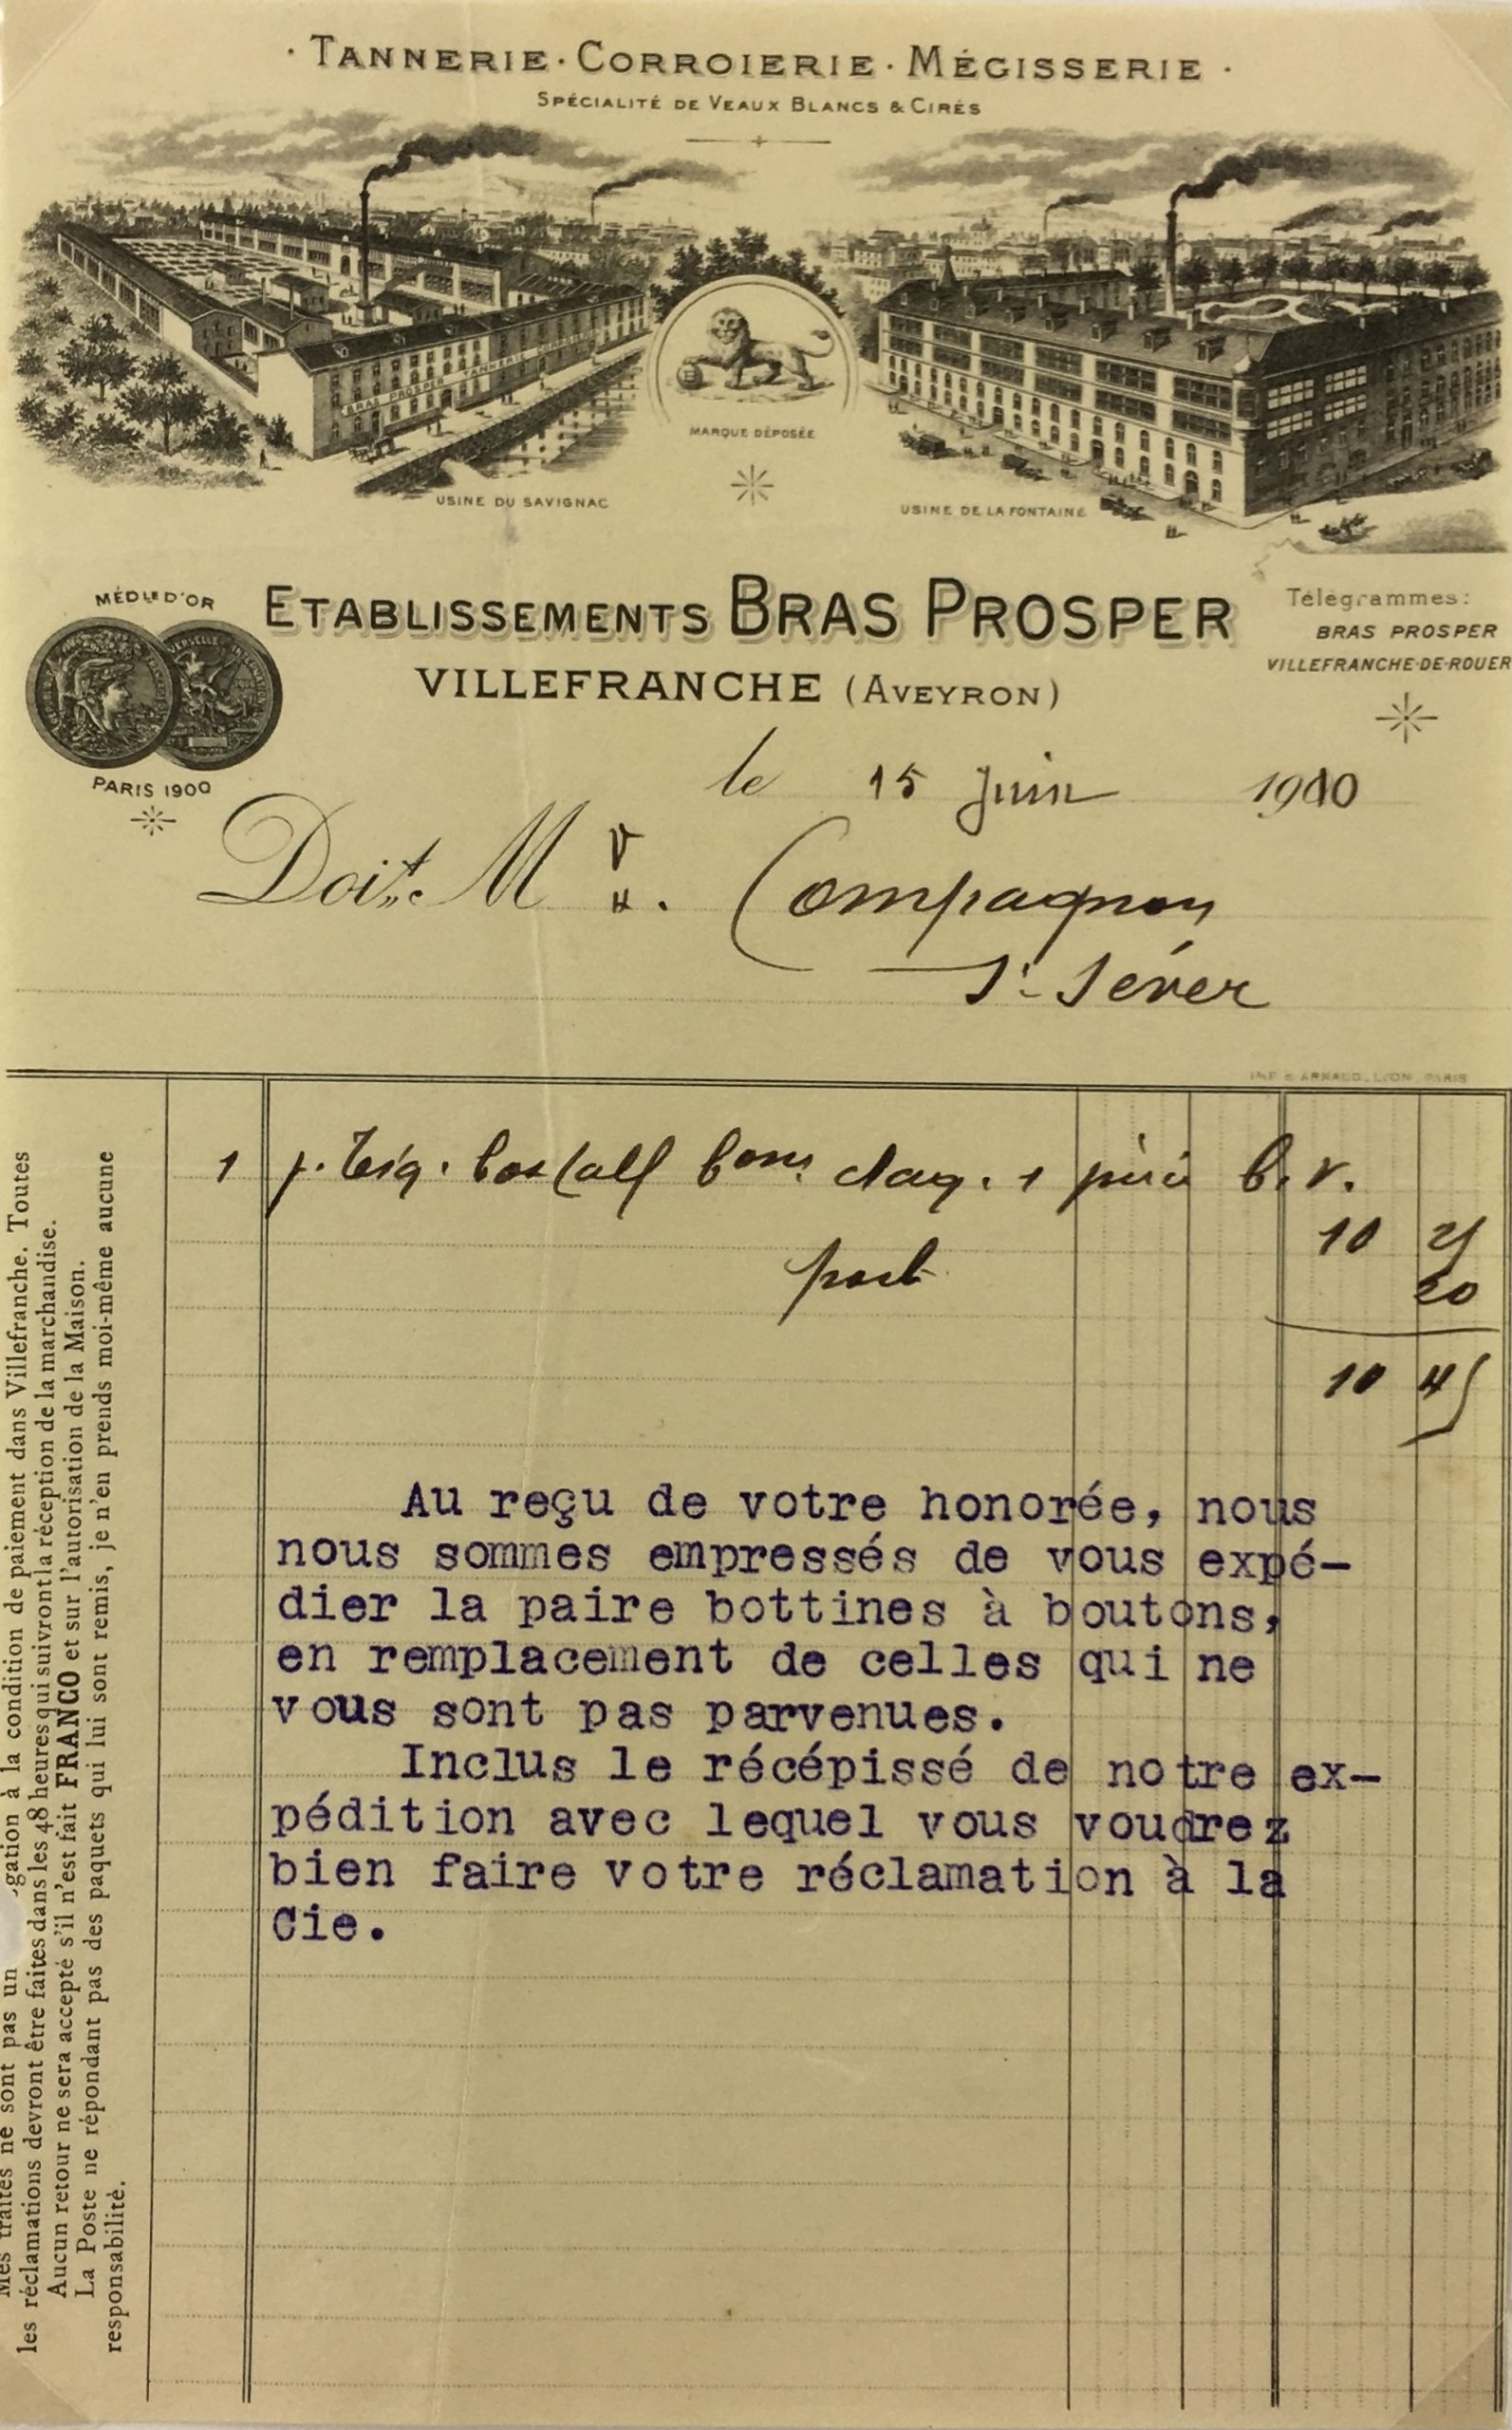 · TANNERIE · CORROIERIE · MÉGISSERIE ·
SPÉCIALITÉ DE VEAUX BLANCS & CIRÉS
BRAS PROSPER TANNERIE
MARQUE DÉPOSÉE
USINE DU SAVIGNAC
USINE DE LA FONTAINE
MÉDLE D'OR
PARIS 1900
ETABLISSEMENTS BRAS PROSPER
VILLEFRANCHE (AVEYRON)
Télégrammes:
BRAS PROSPER
VILLEFRANCHE-DE-ROUER
le 15 Juin 1910
Doit M Compagnon
St. Sever
IMP. ARNAUD, LYON, PARIS
1 p. boxcalf claq. 1 b. v.
10 25
port 20
10 45
Au reçu de votre honorée, nous
nous sommes empressés de vous expé-
dier la paire bottines à boutons,
en remplacement de celles qui ne
vous sont pas parvenues.
Inclus le récépissé de notre ex-
pédition avec lequel vous voudrez
bien faire votre réclamation à la
Cie.
Mes traites ne sont pas un gation à la condition de paiement dans Villefranche. Toutes
les réclamations devront être faites dans les 48 heures qui suivront la réception de la marchandise.
Aucun retour ne sera accepté s'il n'est fait FRANCO et sur l'autorisation de la Maison.
La Poste ne répondant pas des paquets qui lui sont remis, je n'en prends moi-même aucune
responsabilité.